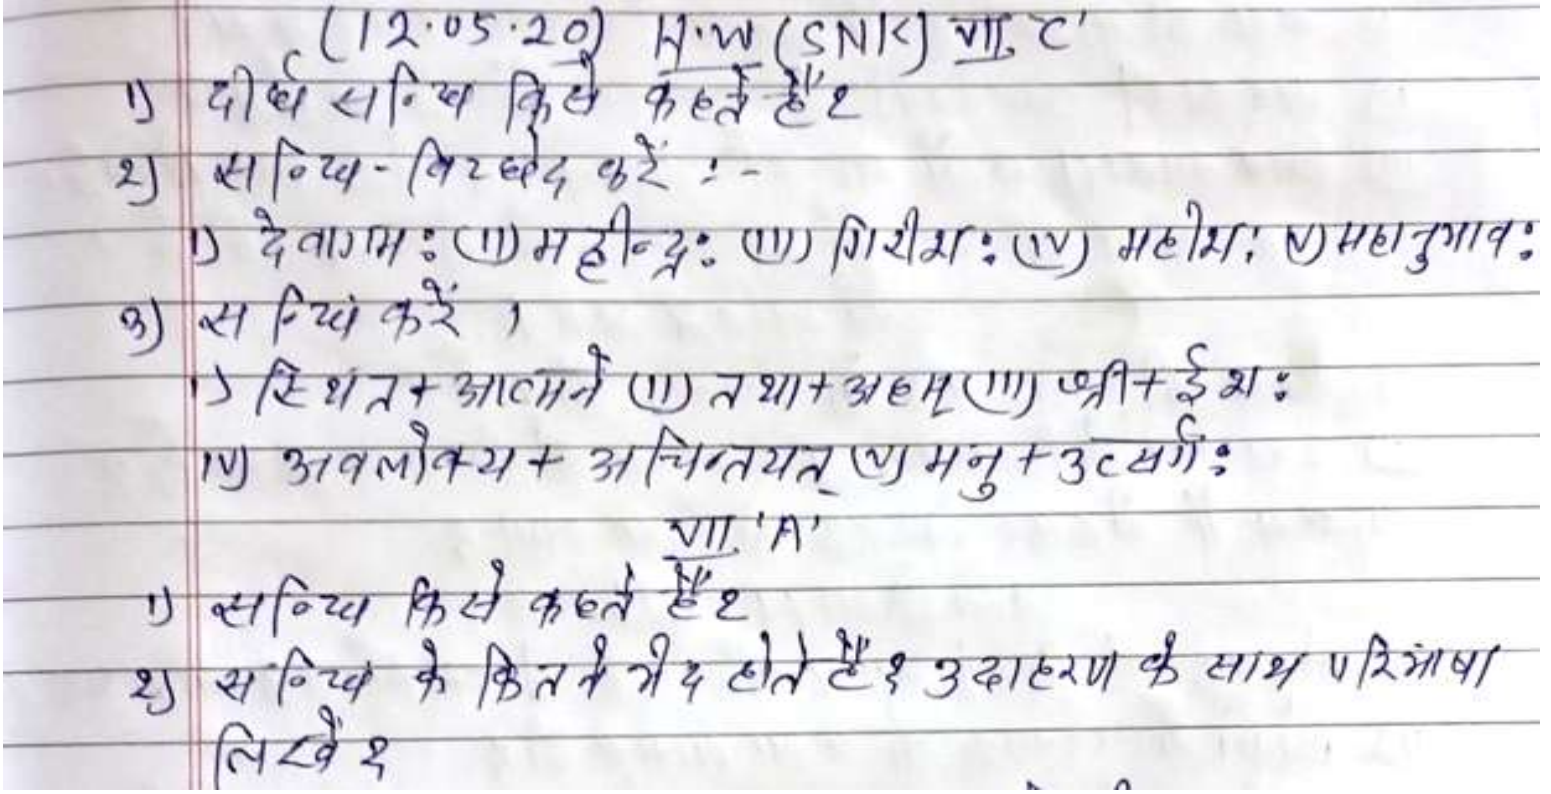 (12.05.20) H.W (SNK) VII 'C'
1) दीर्घ सन्धि किसे कहते हैं?
2) सन्धि-विच्छेद करें :-
i) देवागमः (ii) महीन्द्रः (iii) गिरीशः (iv) महीशः (v) महानुभावः
3) सन्धि करें ।
i) स्थित + आत्मने (ii) तथा + अहम् (iii) श्री + ईशः
iv) अवलोक्य + अचिन्तयत् (v) मनु + उत्सर्गः
VII 'A'
1) सन्धि किसे कहते हैं?
2) सन्धि के कितने भेद होते हैं? उदाहरण के साथ परिभाषा
लिखें?